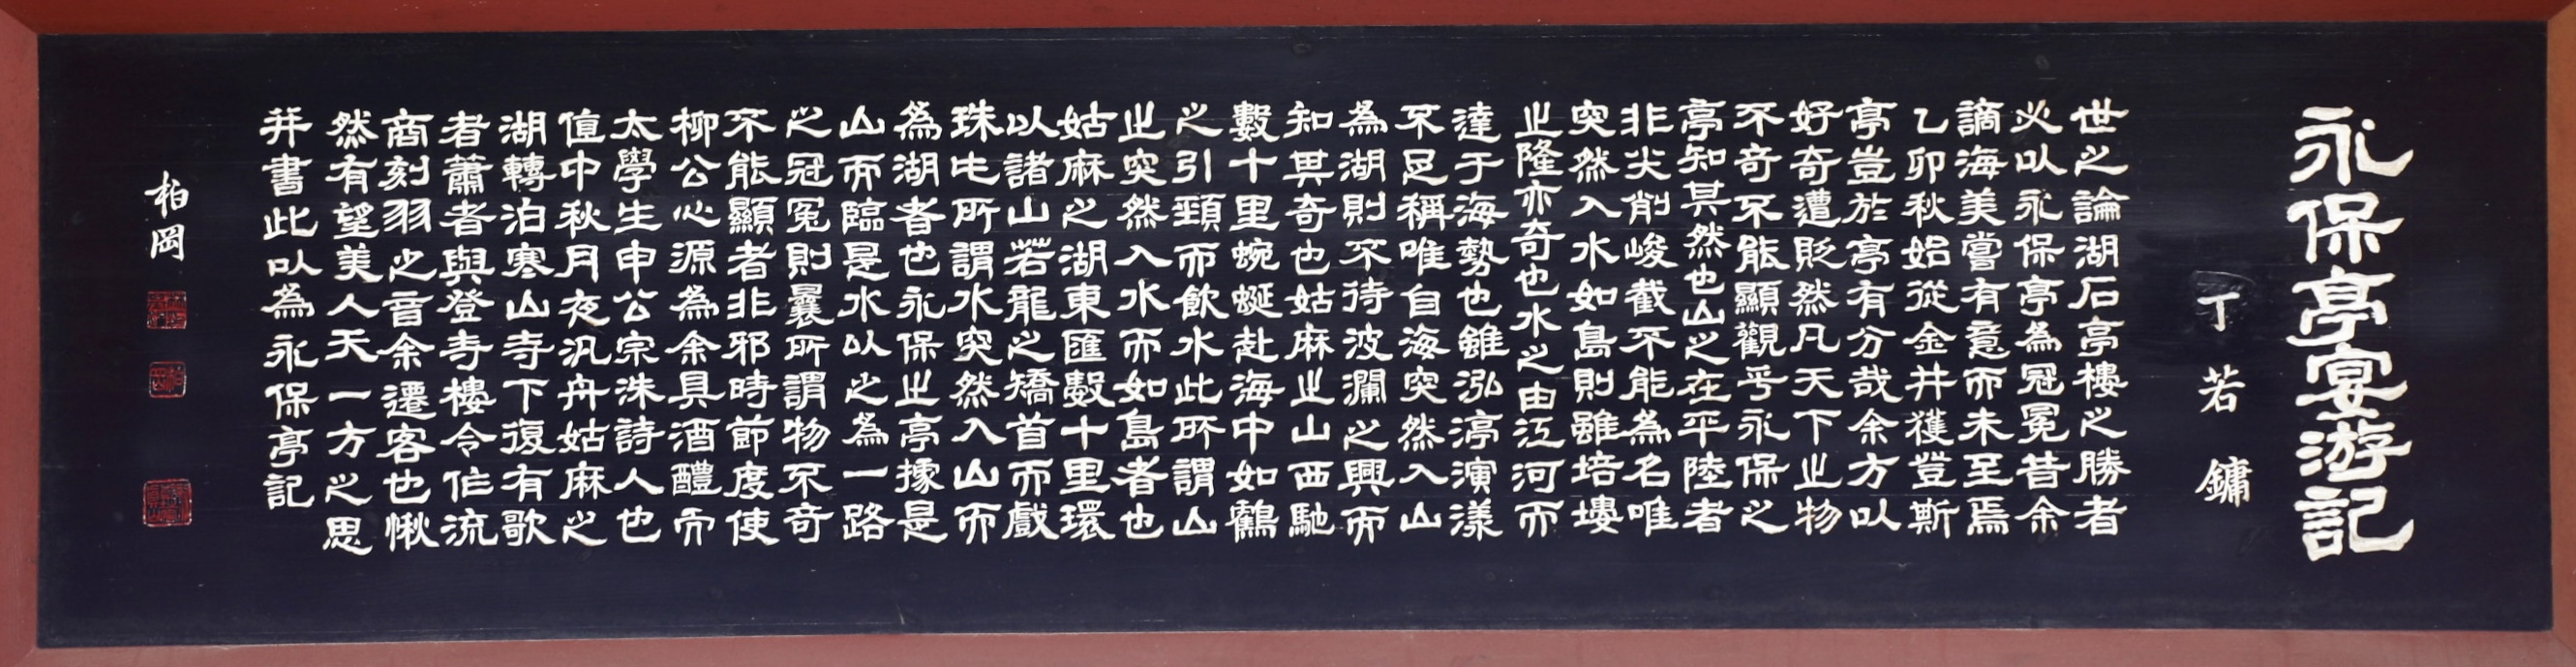 永保亭宴游記
丁若鏞
世之論湖石亭樓之勝者
必以永保亭為冠冕昔余
謫海美嘗有意而未至焉
乙卯秋始從金井獲登斯
亭豈於亭有分哉余方以
好奇遭貶然凡天下之物
不奇不能顯觀乎永保之
亭知其然也山之在平陸者
非尖削峻截不能為名唯
突然入水如島則雖培塿
之隆亦奇也水之由江河而
達于海勢也雖泓渟演漾
不足稱唯自海突然入山
為湖則不待波瀾之興而
知其奇也姑麻之山西馳
數十里蜿蜒赴海中如鶴
之引頸而飲水此所謂山
之突然入水而如島者也
姑麻之湖東匯數十里環
以諸山若龍之矯首而戲
珠此所謂水突然入山而
為湖者也永保之亭據是
山而臨是水以之為一路
之冠冕則曩所謂物不奇
不能顯者非邪時節度使
柳公心源為余具酒醴而
太學生申公宗洙詩人也
値中秋月夜汎舟姑麻之
湖轉泊寒山寺下復有歌
者蕭者與登寺樓令作流
商刻羽之音余遷客也愀
然有望美人天一方之思
并書此以為永保亭記
柏岡